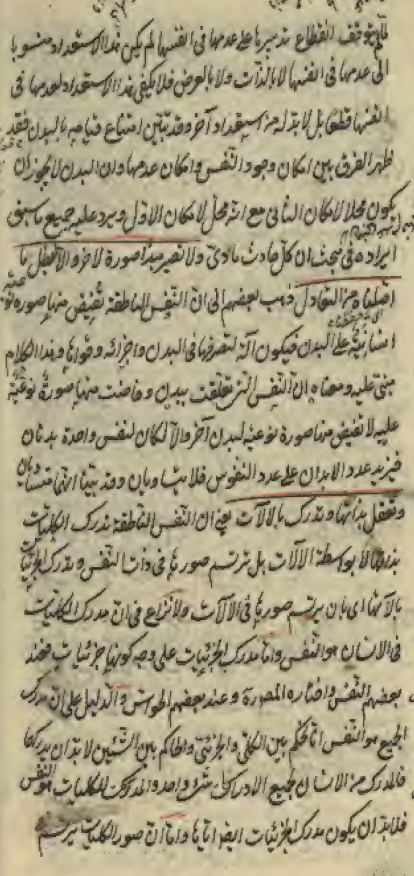 لم يتوقف انقطاع تدبيرها على عدمها في انفسها لم يكن هذا الاستعداد منسوبا
الى عدمها في انفسها لا بالذات ولا بالعرض فلا يكفي هذا الاستعداد لعدمها في
انفسها قطعا بل لا بد له من استعداد آخر وقد تبين امتناع قيامه بالبدن فقد
ظهر الفرق بين امكان وجود النفس وامكان عدمها وان البدن لا يجوز ان
يكون محلا لامكان الثاني مع انه محل لامكان الاول ويرد عليه جميع ما سبق
ايراده في مبحث ان كل حادث مادي ولا تصير مبدأ صورة لآخر والا بطل ما
اصلناه من التعادل ذهب بعضهم الى ان النفس الناطقة تفيض منها صورة نوعية
على البدن فيكون آلة لتصرفها في البدن واجزائه وقواها وهذا الكلام
مبني عليه ومعناه ان النفس التي تعلقت ببدن وفاضت منها صورة نوعية
عليه لا تفيض منها صورة نوعية لبدن آخر والا لكان لنفس واحدة بدنان
فيزيد عدد الابدان على عدد النفوس فلا يتساويان وقد بينا انهما متساويان
وتعقل بذاتها وتدرك بالآلات يعني ان النفس الناطقة تدرك الكليات
بذاتها لا بواسطة الآلات بل ترتسم صورها في ذات النفس وتدرك الجزئيات
بالآلتها اي بان يرتسم صورها في الآلات ولا نزاع في ان مدرك الكليات
في الانسان هو النفس واما مدرك الجزئيات على وجه كونها جزئيات فعند
بعضهم النفس واختاره المصـ وعند بعضهم الحواس والدليل على ان مدرك
الجميع هو النفس انا نحكم بين الكلي والجزئي والحاكم بين الشيئين لا بد ان يدركهما
فالمدرك من الانسان لجميع الادراكات شيء واحد والمدرك للكليات هو النفس
فلا بد ان يكون مدرك الجزئيات ايضا اياها واما ان صور الكليات يرتسم